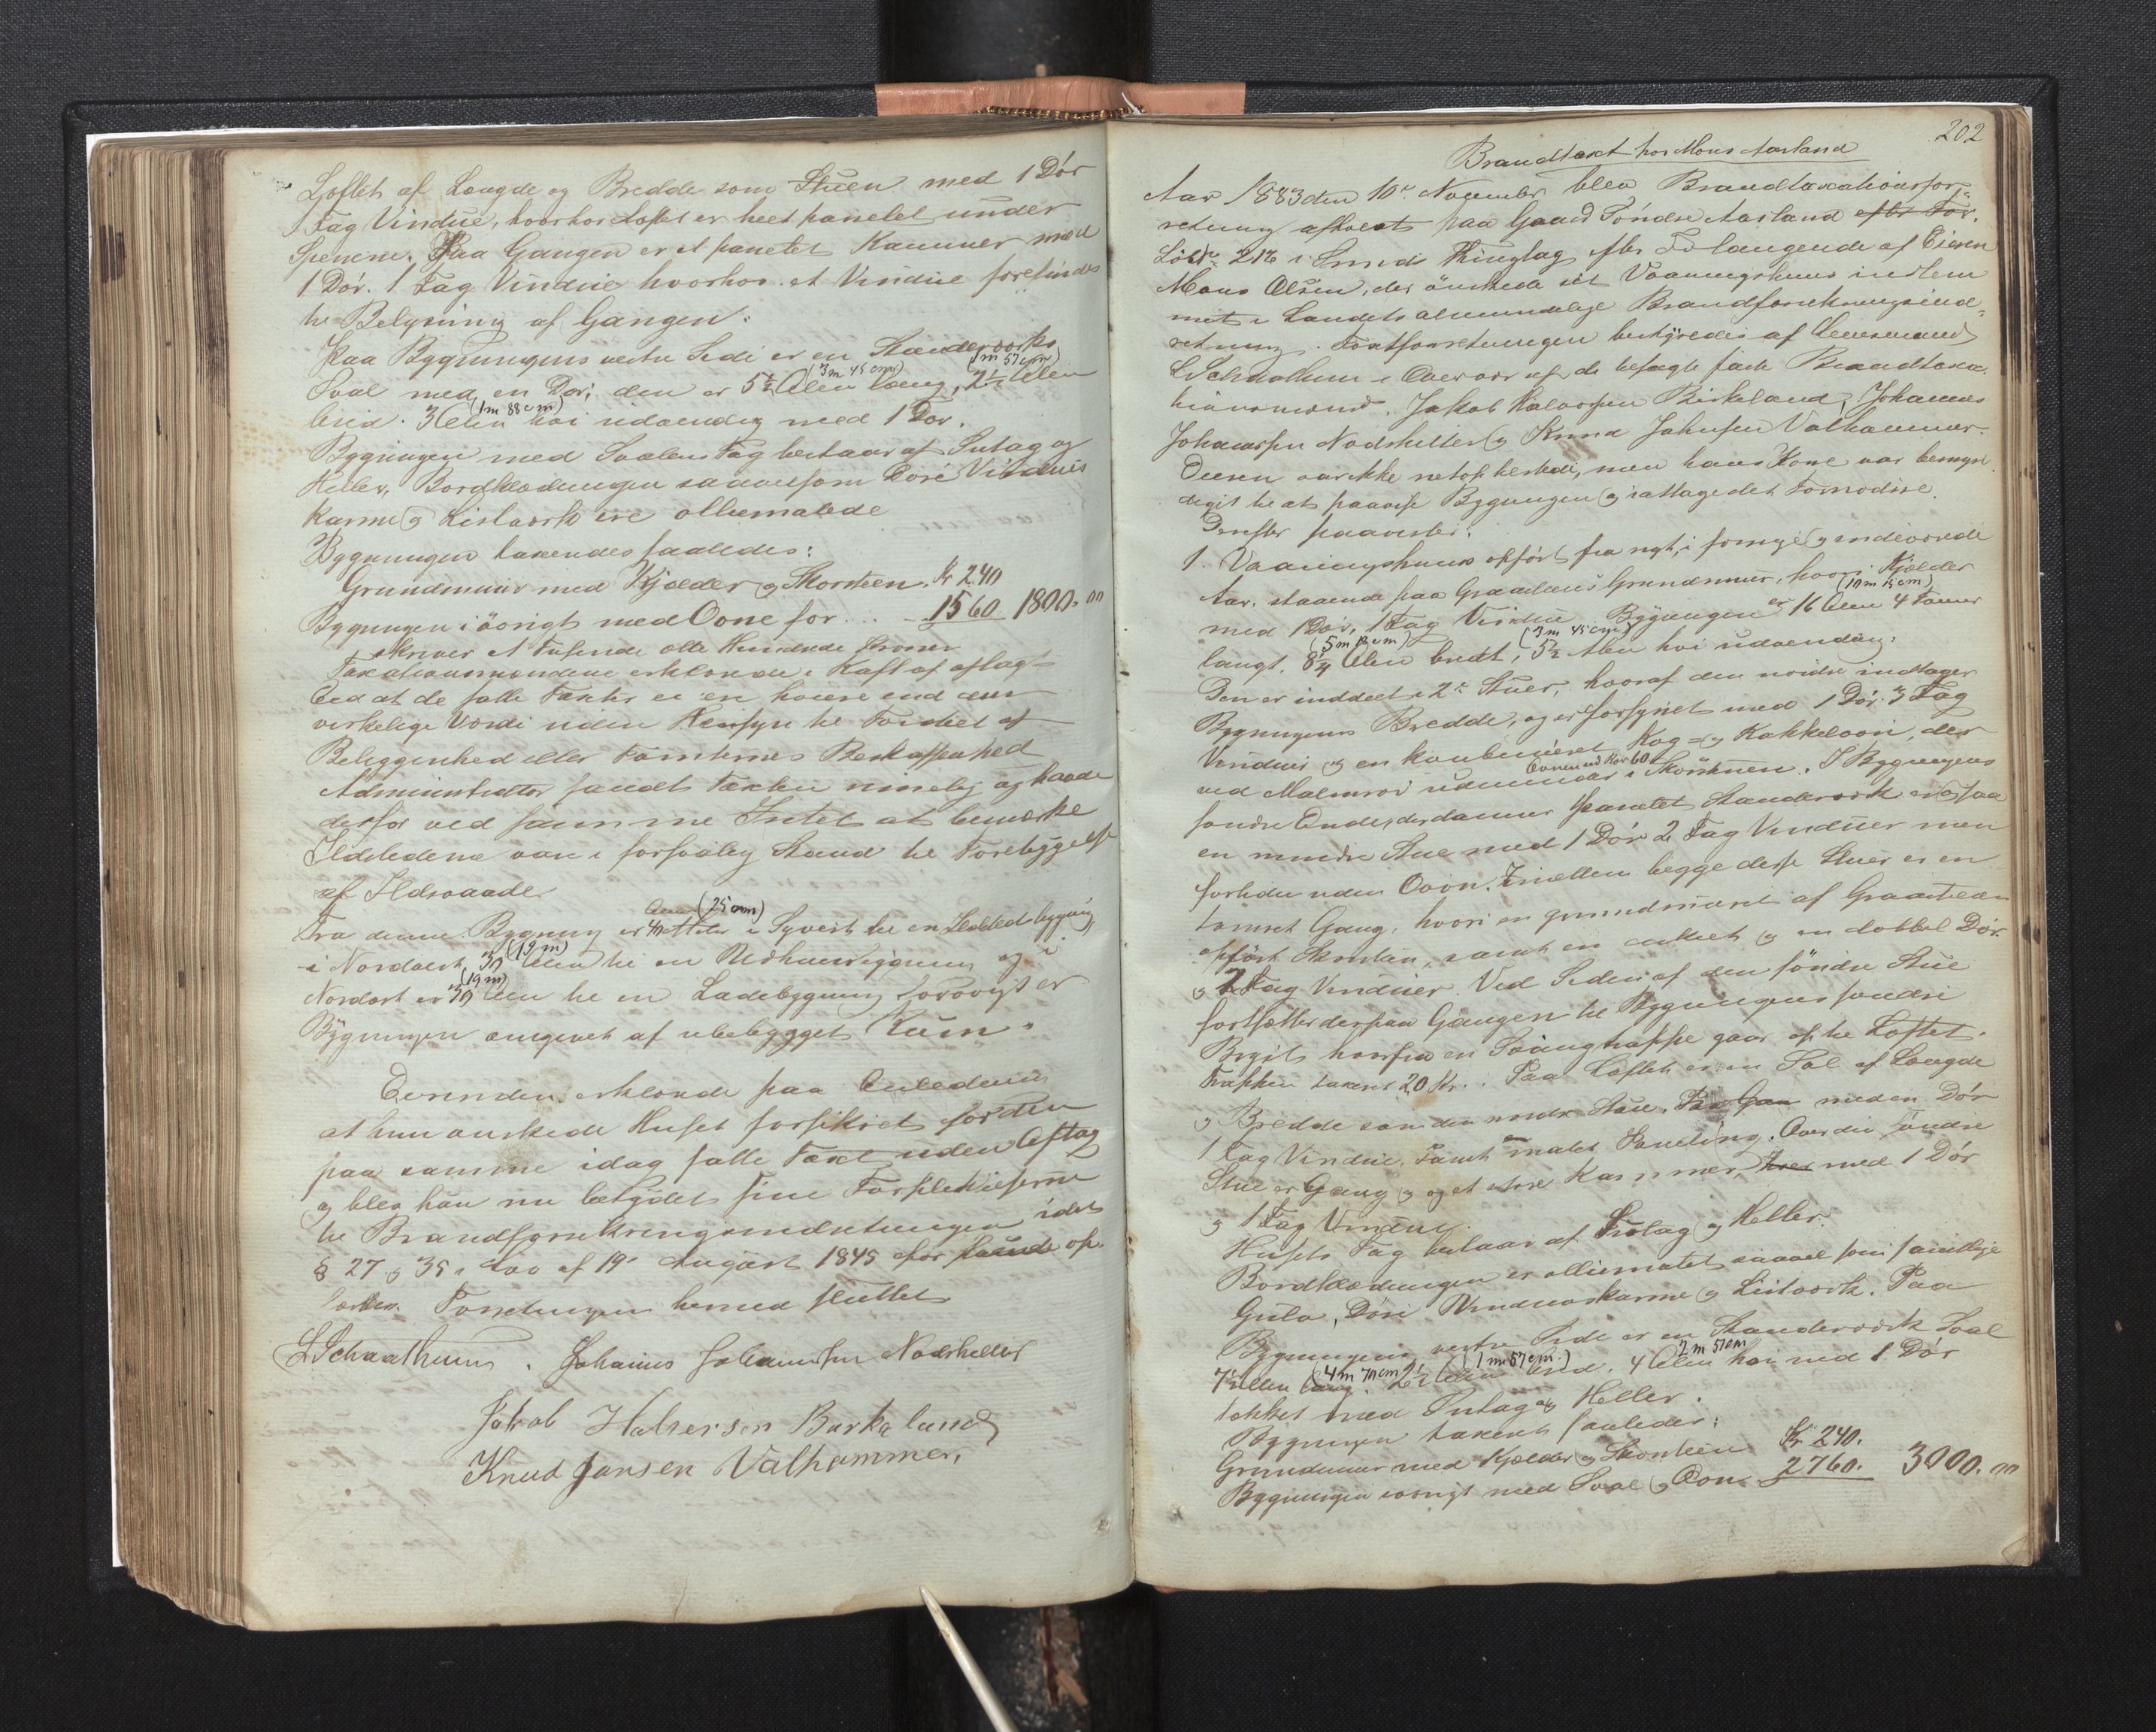 Loftet af Længde og Bredde som Stuen med 1 Dør
Fag Vindue, hvorhos Loftet er heel panelet under
Sperrene. Paa Gangen er et panelet Kammer med
1 Dør. 1 Fag Vindue hvorhos et Vindue forefindes
til Belysning af Gangen.
Paa Bygningens vestre Side er en Standerværks
(3 m 45 cm) (1 m 57 cm)
Sval med en Dør, den er 5½ Alen lang, 2½ Alen
(1 m 88 cm)
bred. 3 Alen høi udvendig med 1 Dør.
Bygningen med Svalens Tag bestaar af Sutag og
Heller, Bordklædningen saavelsom Døre Vindues
Karme og Listværk ere olliemalede
Bygningen taxeredes saaledes:
Grundmuur med Kjælder og Skorsteen. Kr 240
Bygningen iøvrigt med Ovne for ... 1560 1800.00
skriver et Tusinde otte Hundrede Kroner
Taxationsmændene erklærede i Kraft af aflagt
Eed at de satte Taxter ei er høiere end den
virkelige Værdi uden Hensyn til Fordeel af
Beliggenhed eller Tomternes Beskaffenhed
Administrator fandt Taxten rimelig og havde
derfor ved samme Intet at bemærke
Ildstederne vare i forsvarlig Stand til Forebyggelse
af Ildsvaade
Alen (25 cm)
Fra denne Bygning er i Sydvest til en Ildstedsbygning
(19 m)
i Nordvest 30 Alen til en Udhuusbygning og i
(19 m)
Nordost er 30 Alen til en Ladebygning forøvrigt er
Bygningen omgivet af ubebygget Rum.
Eierinden erklærede paa Anledning
at hun ønskede Huset forsikret for den
paa samme idag satte Taxt uden Aftag
og blev han nu betydet sine Forpligtelserne
til Brandforsikringsindretningen idet
§ 27 og 35 i Lov af 19 August 1845 for op-
læstes. Forretningen hermed sluttet
L Schaathun. Johannes Johannessen Nodsheller
Jakob Halversen Birkeland
Knud Jansen Valhammer,
202
Brandtaxt hos Mons Aarland
Aar 1883 den 10de November blev Brandtaxationsfor-
retning afholdt paa Gaard Søndre Aarland efter For-
Løbnr 212 i Thinglag efter Forlangende af Eieren
Mons Olsen, der ønskede sit Vaaningshuus indlem-
met i Landets almindelige Brandforsikringsind-
retning. Taxtforretningen bestyredes af Lensmand
L Schaathun i Overvær af de befalte faste Brandtaxa-
tionsmænd. Jakob Halvorsen Birkeland, Johannes
Johannessen Nodsheller og Knud Johnsen Valhammer.
Eieren var ikke netop tilstede, men hans Kone var bemyn-
diget til at paavise Bygningen og iagttage det Fornødne.
Derefter paavistes:
1. Vaaningshuus opført fra nyt, i forrige og indeværende
Aar, staaende paa Graasteens Grundmuur, hvori Kjælder
(10 m 15 cm)
med 1 Dør, 1 Fag Vindue. Bygningen er 16 Alen 4 Tommer
(5 m 18 cm) (3 m 45 cm)
langt. 8¼ Alen bredt, 5½ Alen høi udvendig.
Den er inddeelt i 2de Stuer, hvoraf den nordre indtager
Bygningens Bredde, og er forsynet med 1 Dør. 3 Fag
Vinduer og en kombineret Kog- og Kakkelovn, der
Ovnen Kr 60
ved Malmrør udmunder i Skorstenen. I Bygningens
søndre Ende, der danner panelet Standerværk er ogsaa
en mindre Stue med 1 Dør 2 Fag Vinduer men
forhen uden Ovn. Imellem begge disse Stuer er en
tømret Gang, hvori en grundmuret af Graasteen
opført Skorsten, samt en enkelt og en dobbel Dør
og 2 Fag Vinduer. Ved Siden af den søndre Stue
fortsættes derpaa Gangen til Bygningens søndre
hvorfra en Svingtrappe gaar op til Loftet.
Trappen taxeret 20 Kr. Paa Loftet er en Sal af Længde
og Bredde som den nordre Stue. Paa Gan med en Dør
1 Fag Vindue, samt malet Paneling. Over den søndre
Stue er Gang og et større Kammer, hver med 1 Dør
og 1 Fag Vindue.
Husets Tag bestaar af Sutag og Heller.
Bordklædningen er olliemalet saavel som samtlige
Gulv, Døre Vindueskarme og Listværk. Paa
Bygningens vestre Side er en Standerværk Sval
(4 m 70 cm) (1 m 57 cm.) 2 m 51 cm
7½ Alen lang. 2½ Alen bred. 4 Alen høi med 1 Dør
tækket med Sutag og Heller.
Bygningen taxeret saaledes:
Grundmuur med Kjælder og Skorsteen Kr 240.
Bygningen iøvrigt med Sval og Ovn 2760. 3000.00